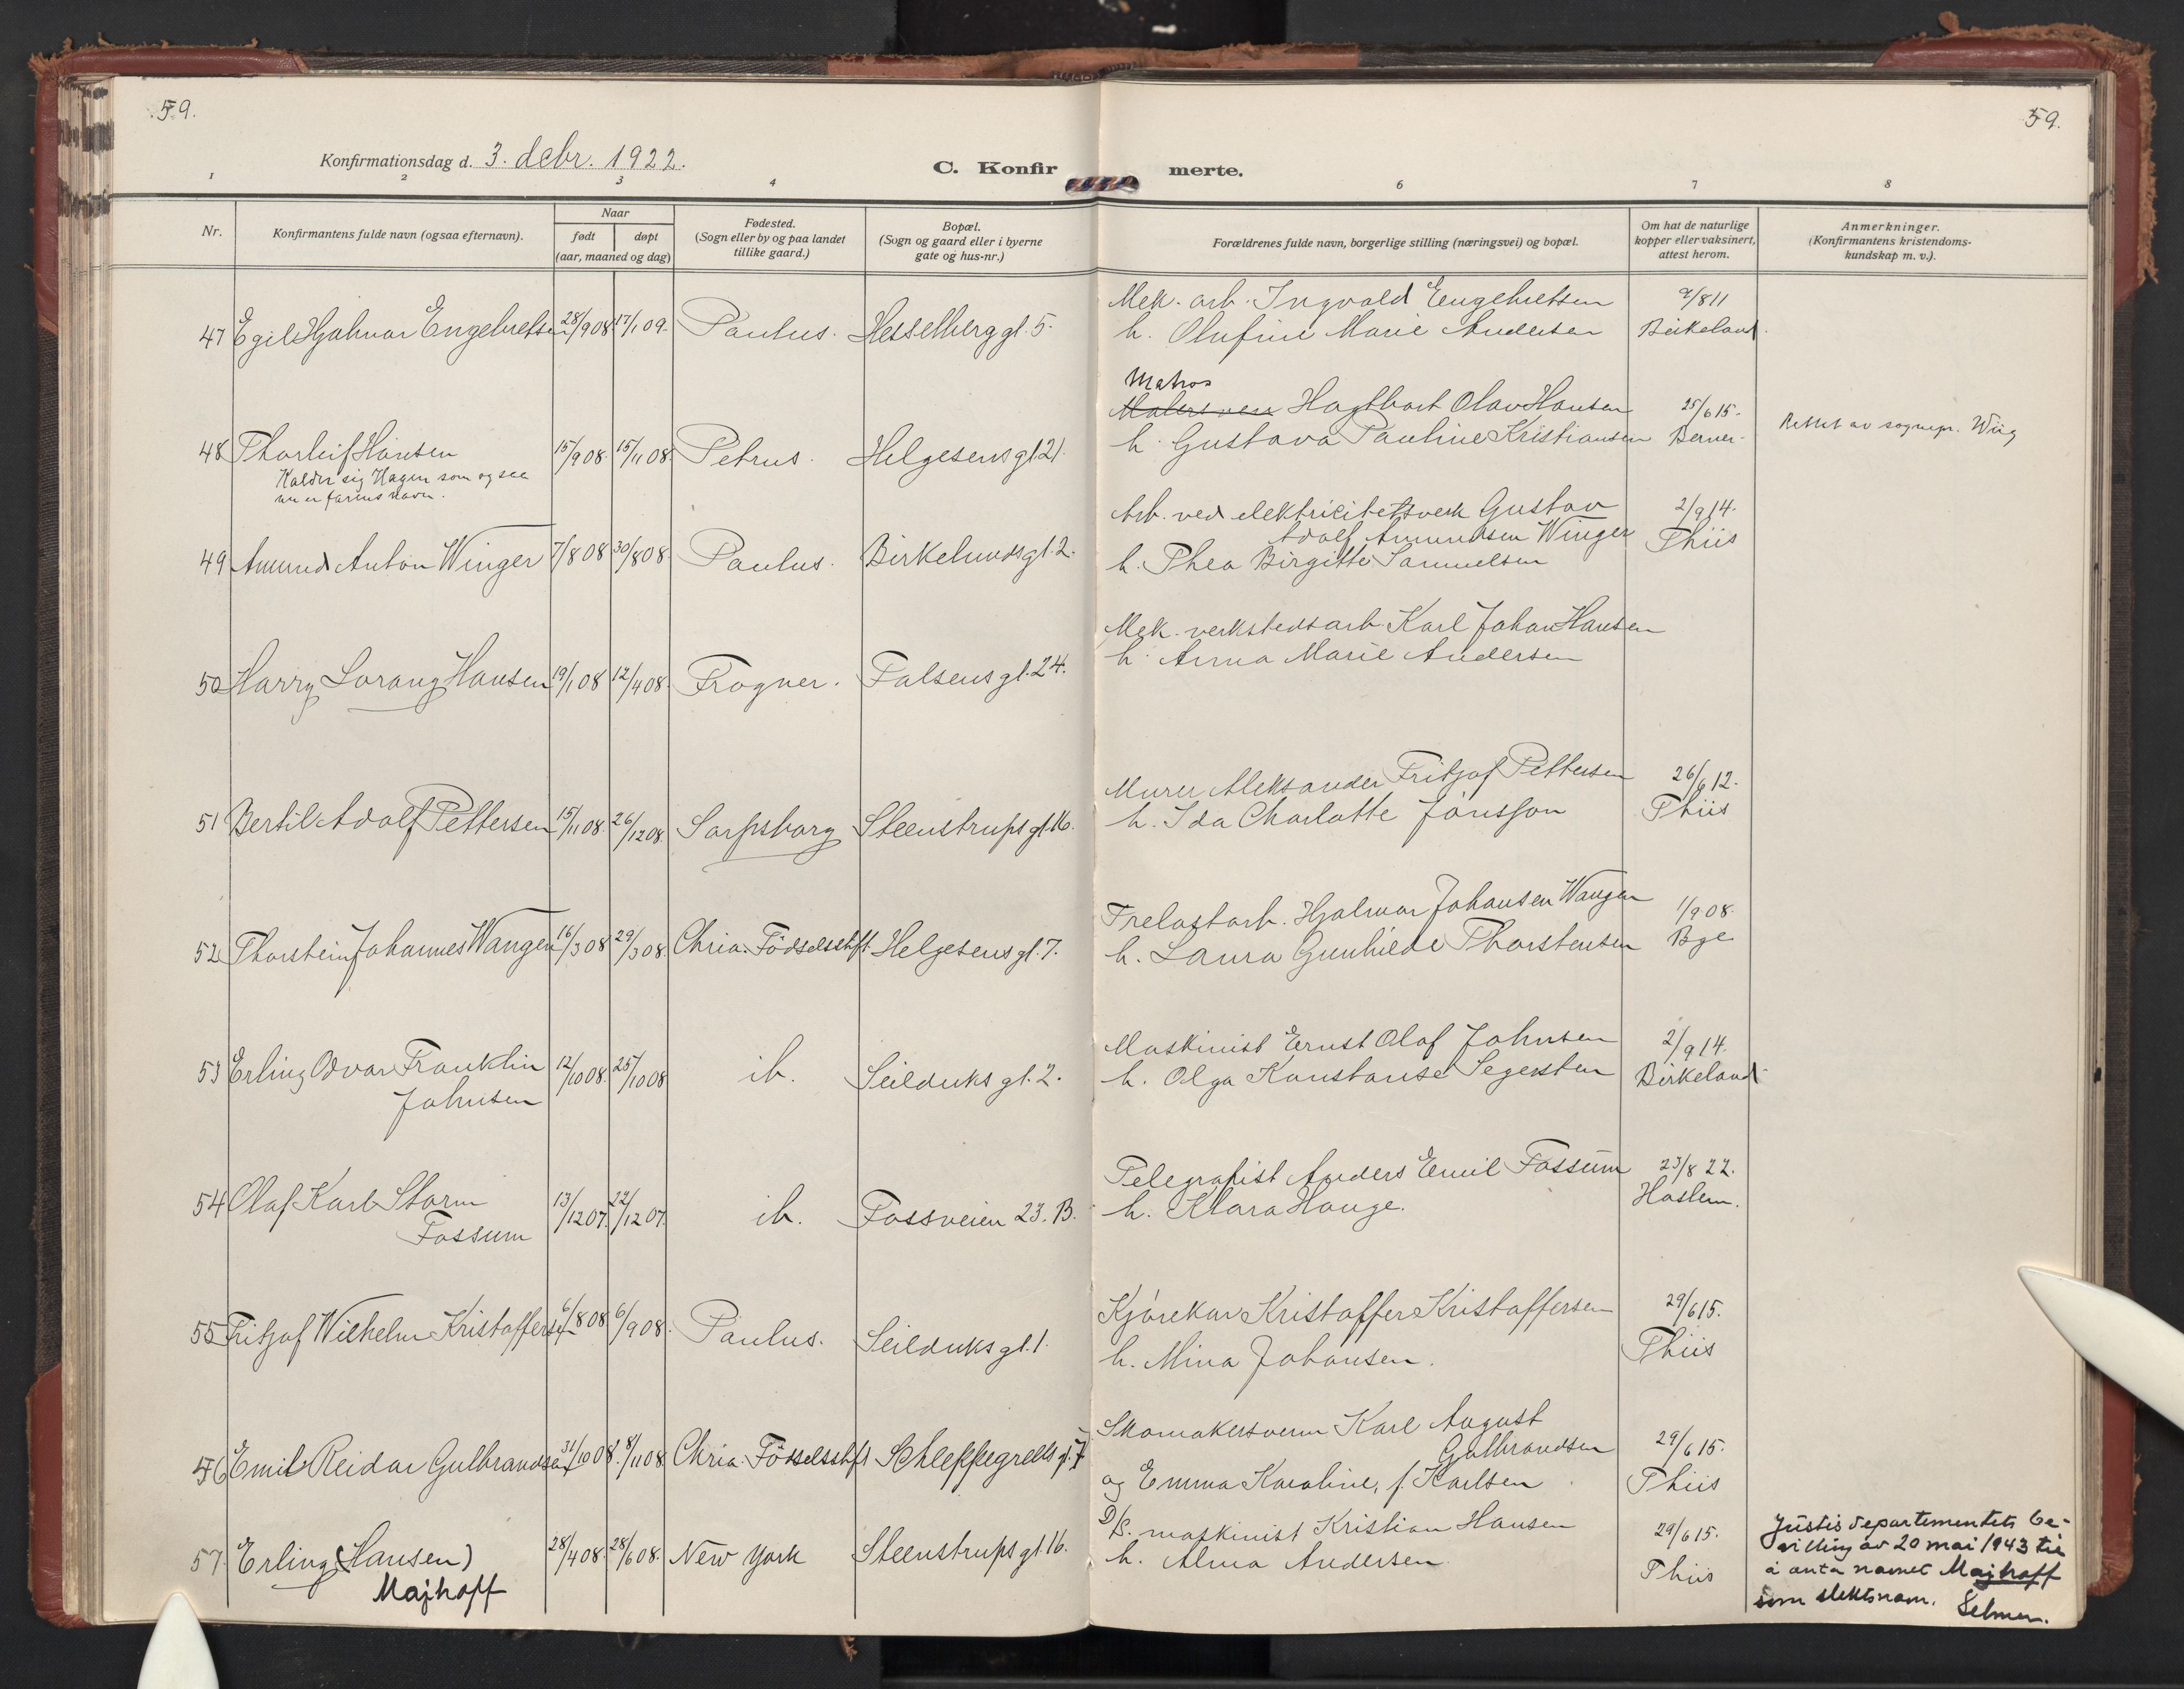 59.
59.
Konfirmationsdag d. 3. debr. 1922.
C. Konfir merte.
1 2 3 4 6 7 8
Nr.
Konfirmantens fulde navn (ogsaa efternavn).
Naar
født
døpt
(aar, maaned og dag)
Fødested.
(Sogn eller by og paa landet
tillike gaard.)
Bopæl.
(Sogn og gaard eller i byerne
gate og hus-nr.)
Forældrenes fulde navn, borgerlige stilling (næringsvei) og bopæl.
Om hat de naturlige
kopper eller vaksinert,
attest herom.
Anmerkninger.
(Konfirmantens kristendoms-
kundskap m. v.).
Mek. arb. Ingvald Engebretsen 9/8 11
47 Egil Hjalmar Engebretsen 28/9 08 17/1 09. Paulus. Hesselberg gt. 5. h. Olufine Marie Andersen Birkeland.
Matros
Malersven Hagtbart Olav Hansen 25/6 15.
48 Thorleif Hansen 15/9 08. 15/11 08. Petrus. Helgesens gt. 21. h. Gustava Pauline Kristiansen Berner. Rettet av sognepr. Wiig
Kalder sig Hagen som ogsaa
nu er farens navn.
Arb. ved elektricitetsverk Gustav 2/9 14.
Adolf Amundsen Winger Thiis
49 Amund Anton Winger 7/8 08 30/8 08. Paulus. Birkelunds gt. 2. h. Thea Birgitte Samuelsen
Mek. verkstedsarb. Karl Johan Hansen
h. Anna Marie Andersen
50 Harry Lorang Hansen 19/1 08 12/4 08. Frogner. Falsens gt. 24.
Murer Aleksander Fritjof Pettersen 26/6 12.
51 Bertil Adolf Pettersen 15/11 08. 26/12 08. Sarpsborg Steenstrups gt. 16. h. Ida Charlotte Jönsson Thiis
Frelastarb. Hjalmar Johansen Wangen 1/9 08.
52 Thorstein Johannes Wangen 16/3 08 29/3 08. Chria. Födselsstift. Helgesens gt. 7. h. Laura Gunhilde Thorstensen Bge
Maskinist Ernst Olaf Johnsen 2/9 14.
53 Erling Odvar Franklin 12/10 08. 25/10 08 ib. Seilduks gt. 2. h. Olga Konstanse Segersten Birkeland
Johnsen
Telegrafist Anders Emil Fossum 23/8 22.
54 Olaf Karl Storm 13/12 07. 22/12 07. ib. Fossveien 23. B. h. Klara Hauge. Haslem.
Fossum
Kjörekar Kristoffer Kristoffersen 29/6 15.
55 Fritjof Wilhelm Kristoffersen 6/8 08 6/9 08. Paulus. Seilduks gt. 1. h. Mina Johansen. Thiis
Skomakersvenn Karl August
Gulbrandsen 29/6 15.
56 Emil Reidar Gulbrandsen 31/10 08. 8/11 08. Chria. Födselsstift Schleppegrells gt. 7 og Emma Karoline, f. Karlsen Thiis
D/S. maskinist Kristian Hansen 29/6 15.
57. Erling (Hansen) 28/4 08. 28/6 08. New York Steenstrups gt. 16. h. Alma Andersen. Thiis
Majhoff
Justisdepartementets be-
villing av 20 mai 1943 til
å anta navnet Majhoff
som slektsnavn. Selmer.